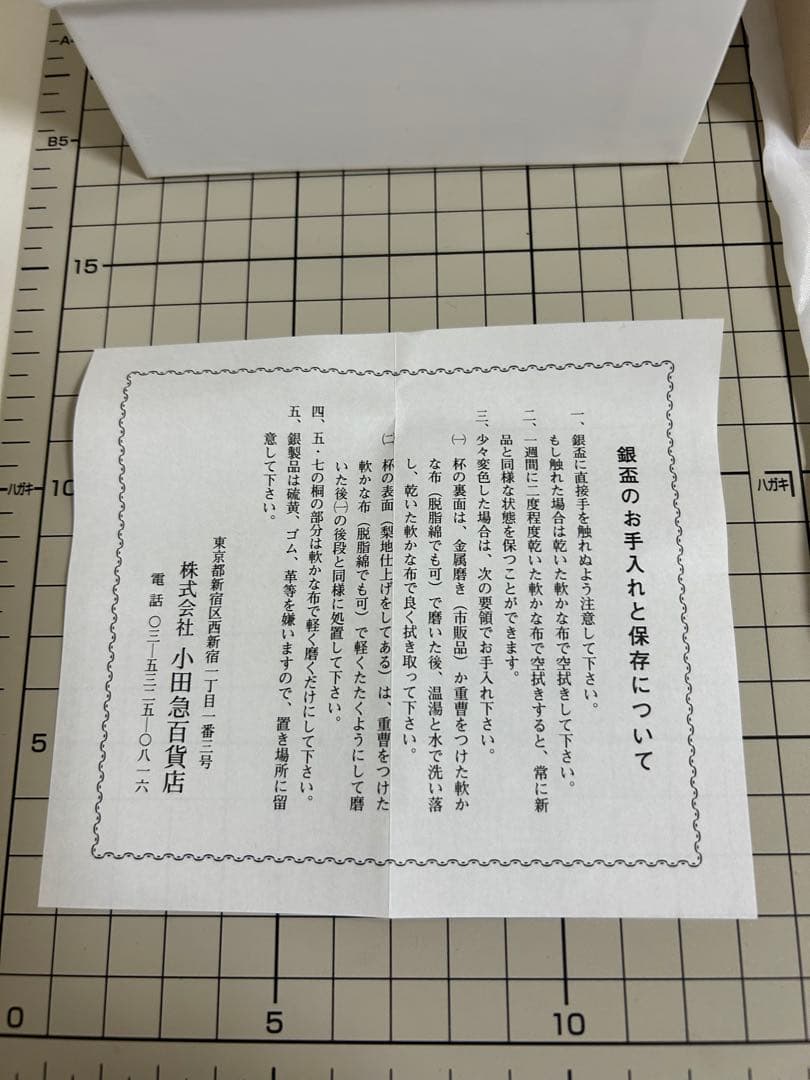 銀盃のお手入れと保存について
一、銀盃に直接手を触れぬよう注意して下さい。
もし触れた場合は乾いた軟かな布で空拭きして下さい。
二、一週間に二度程度乾いた軟かな布で空拭きすると、常に新
品と同様な状態を保つことができます。
三、少々変色した場合は、次の要領でお手入れ下さい。
㈠ 杯の裏面は、金属磨き（市販品）か重曹をつけた軟か
な布（脱脂綿でも可）で磨いた後、温湯と水で洗い落
し、乾いた軟かな布で良く拭き取って下さい。
㈡ 杯の表面（梨地仕上げをしてある）は、重曹をつけた
軟かな布（脱脂綿でも可）で軽くたたくようにして磨
いた後㈠の後段と同様に処置して下さい。
四、五・七の桐の部分は軟かな布で軽く磨くだけにして下さい。
五、銀製品は硫黄、ゴム、革等を嫌いますので、置き場所に留
意して下さい。
東京都新宿区西新宿一丁目一番三号
株式会社 小田急百貨店
電話 〇三―五三二五―〇八一六
A
B5
15
ハガキ
10
ハガキ
5
0
5
10